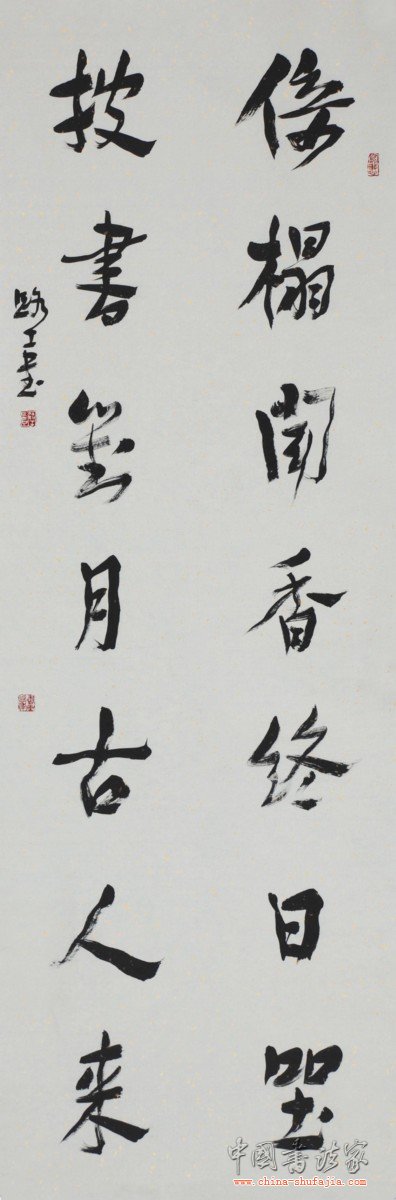 倚榻聞香終日坐
披書對月古人来
路工書
中國書法家
www.china-shufajia.com